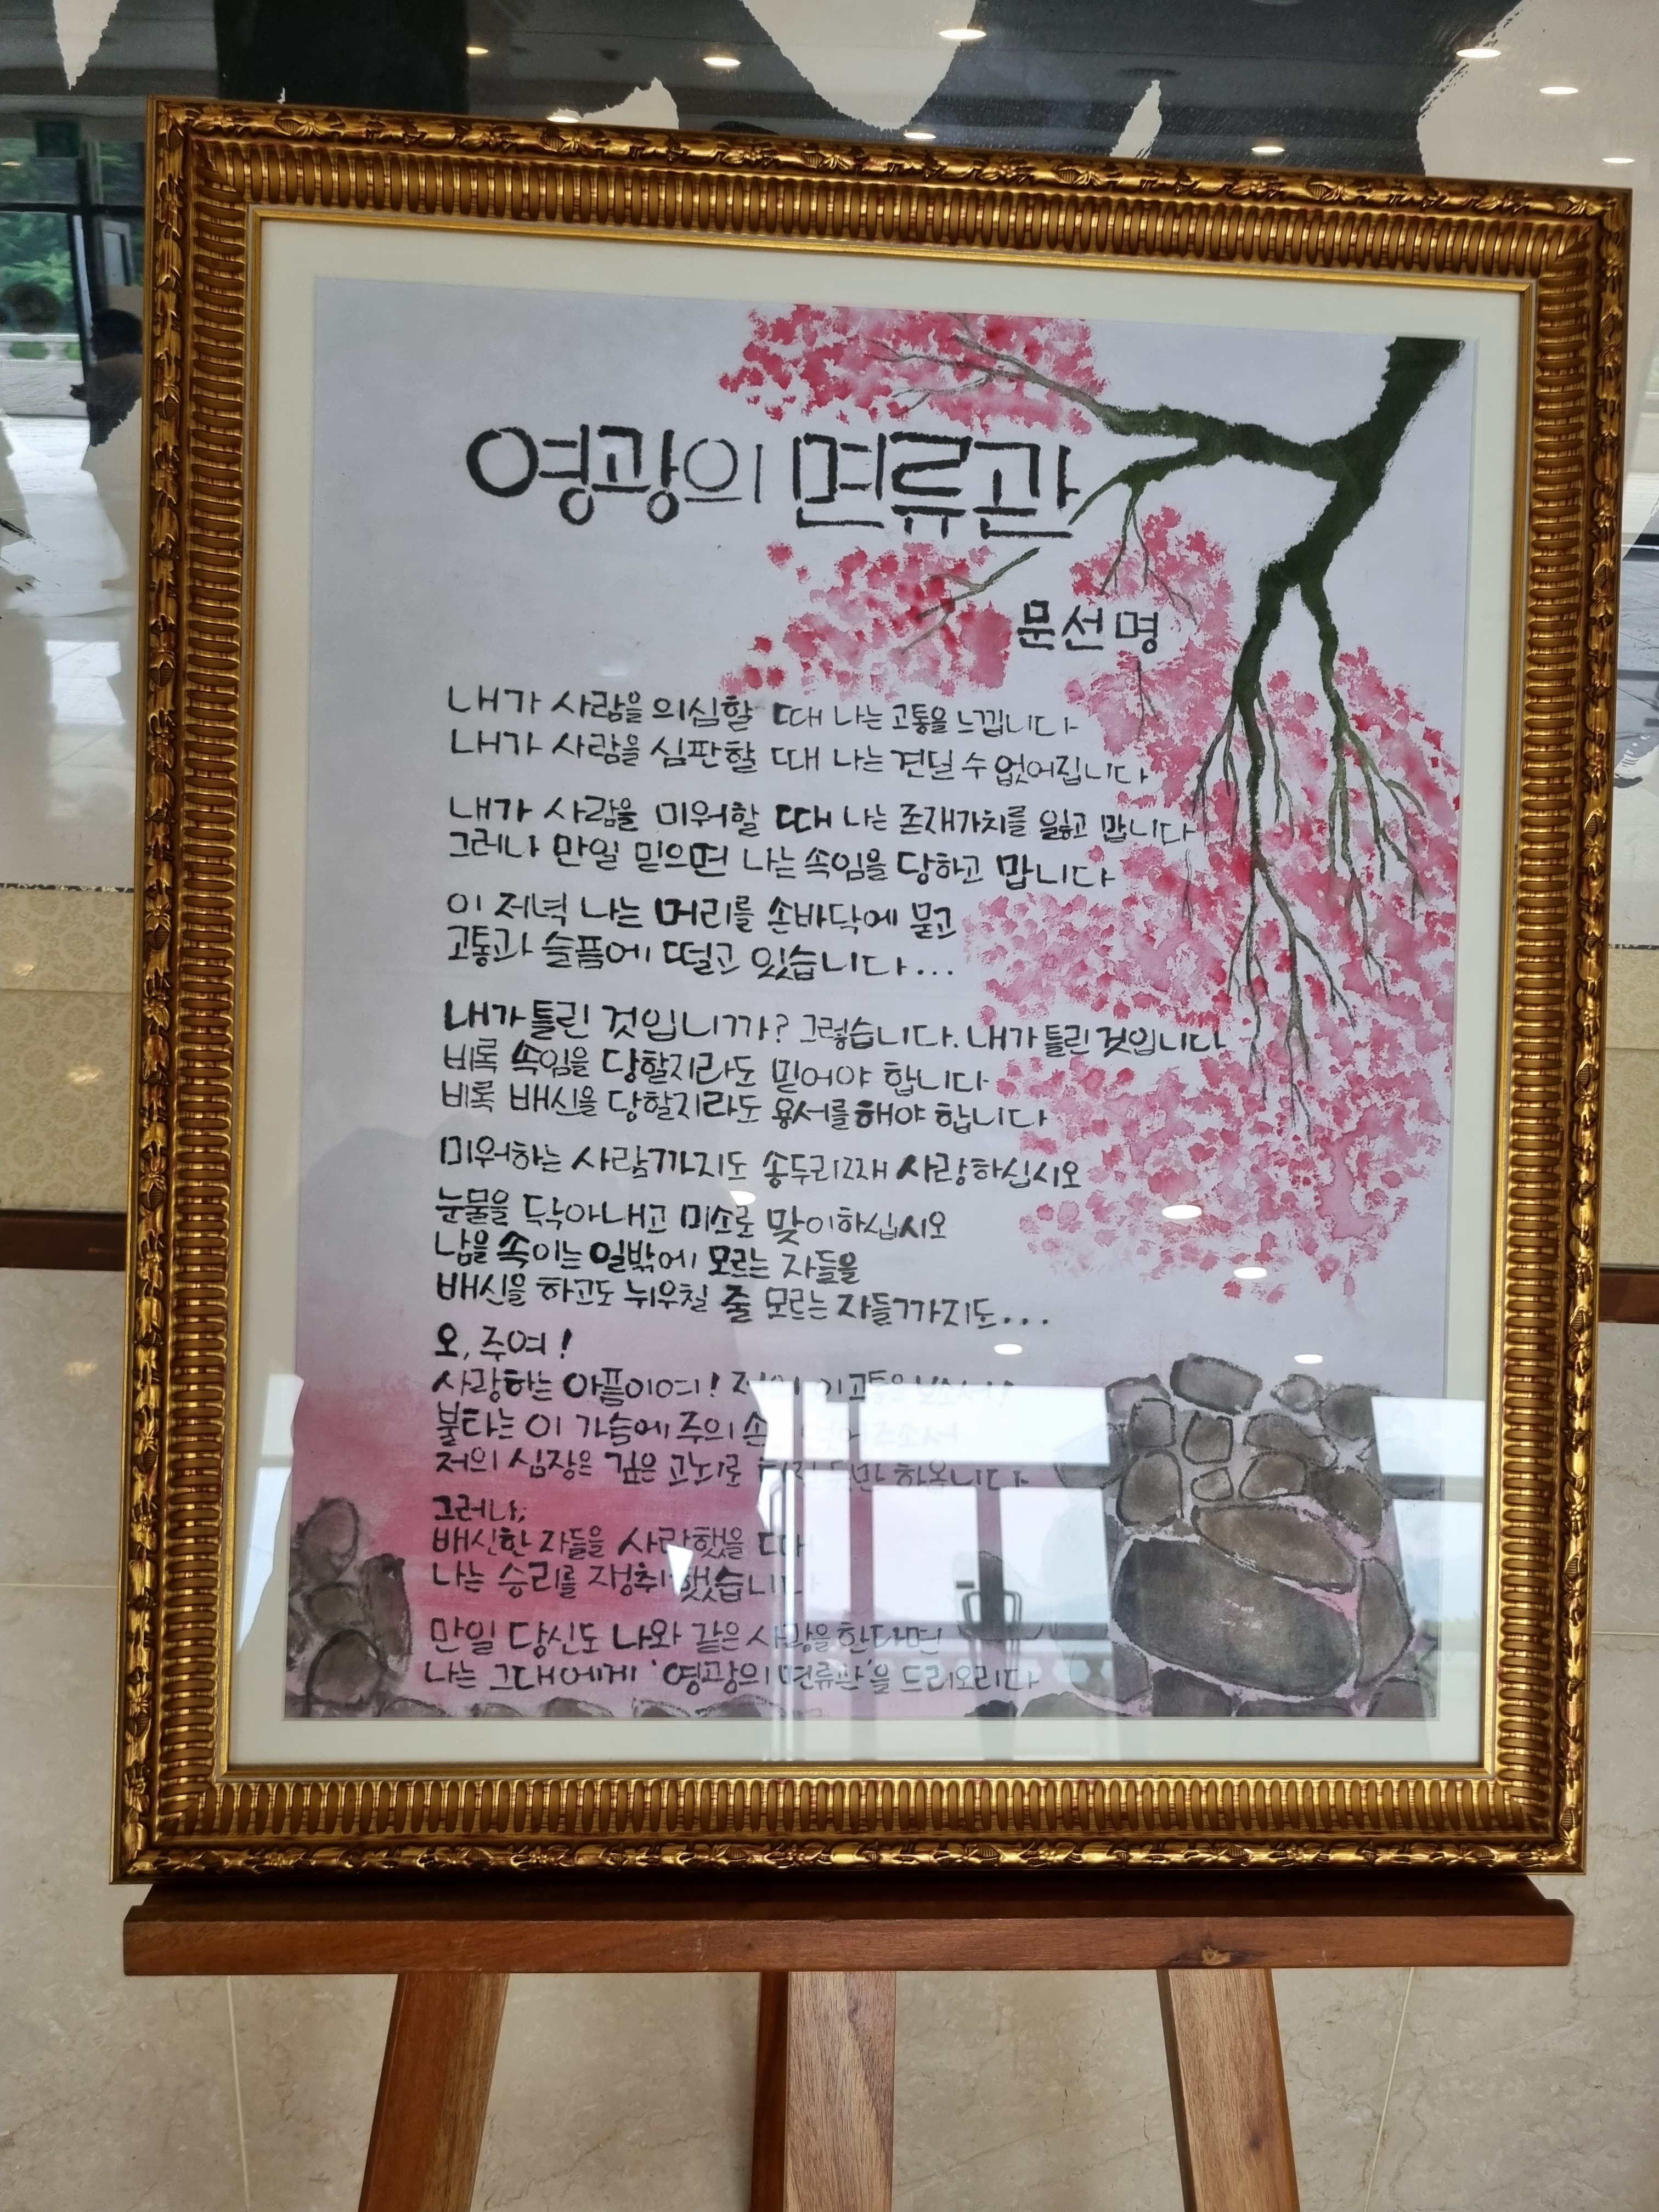 영광의 면류관
문선명
내가 사람을 의심할 때 나는 고통을 느낍니다
내가 사람을 심판할 때 나는 견딜 수 없어집니다
내가 사람을 미워할 때 나는 존재가치를 잃고 맙니다
그러나 만일 믿으면 나는 속임을 당하고 맙니다
이 저녁 나는 머리를 손바닥에 묻고
고통과 슬픔에 떨고 있습니다...
내가 틀린 것입니까? 그렇습니다. 내가 틀린 것입니다
비록 속임을 당할지라도 믿어야 합니다
비록 배신을 당할지라도 용서를 해야 합니다
미워하는 사람까지도 송두리째 사랑하십시오
눈물을 닦아내고 미소로 맞이하십시오
남을 속이는 일밖에 모르는 자들을
배신을 하고도 뉘우칠 줄 모르는 자들까지도...
오, 주여!
사랑하는 아픔이여! 이 고통을
불타는 이 가슴에 주의 손
저의 심장은 깊은 고뇌로
그러나;
배신한 자들을 사랑했을 때
나는 승리를 쟁취했습니다
만일 당신도 나와 같은 사랑을 한다면
나는 그대에게 '영광의 면류관'을 드리오리다